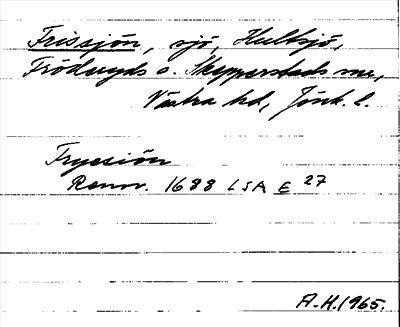 Frissjön, sjö, Hultsjö,
Fröderyds o. Skepperstads snr,
Västra hd, Jönk. l.
Fryesiön
Renov. 1688 LSA E 27
A.H. 1965.